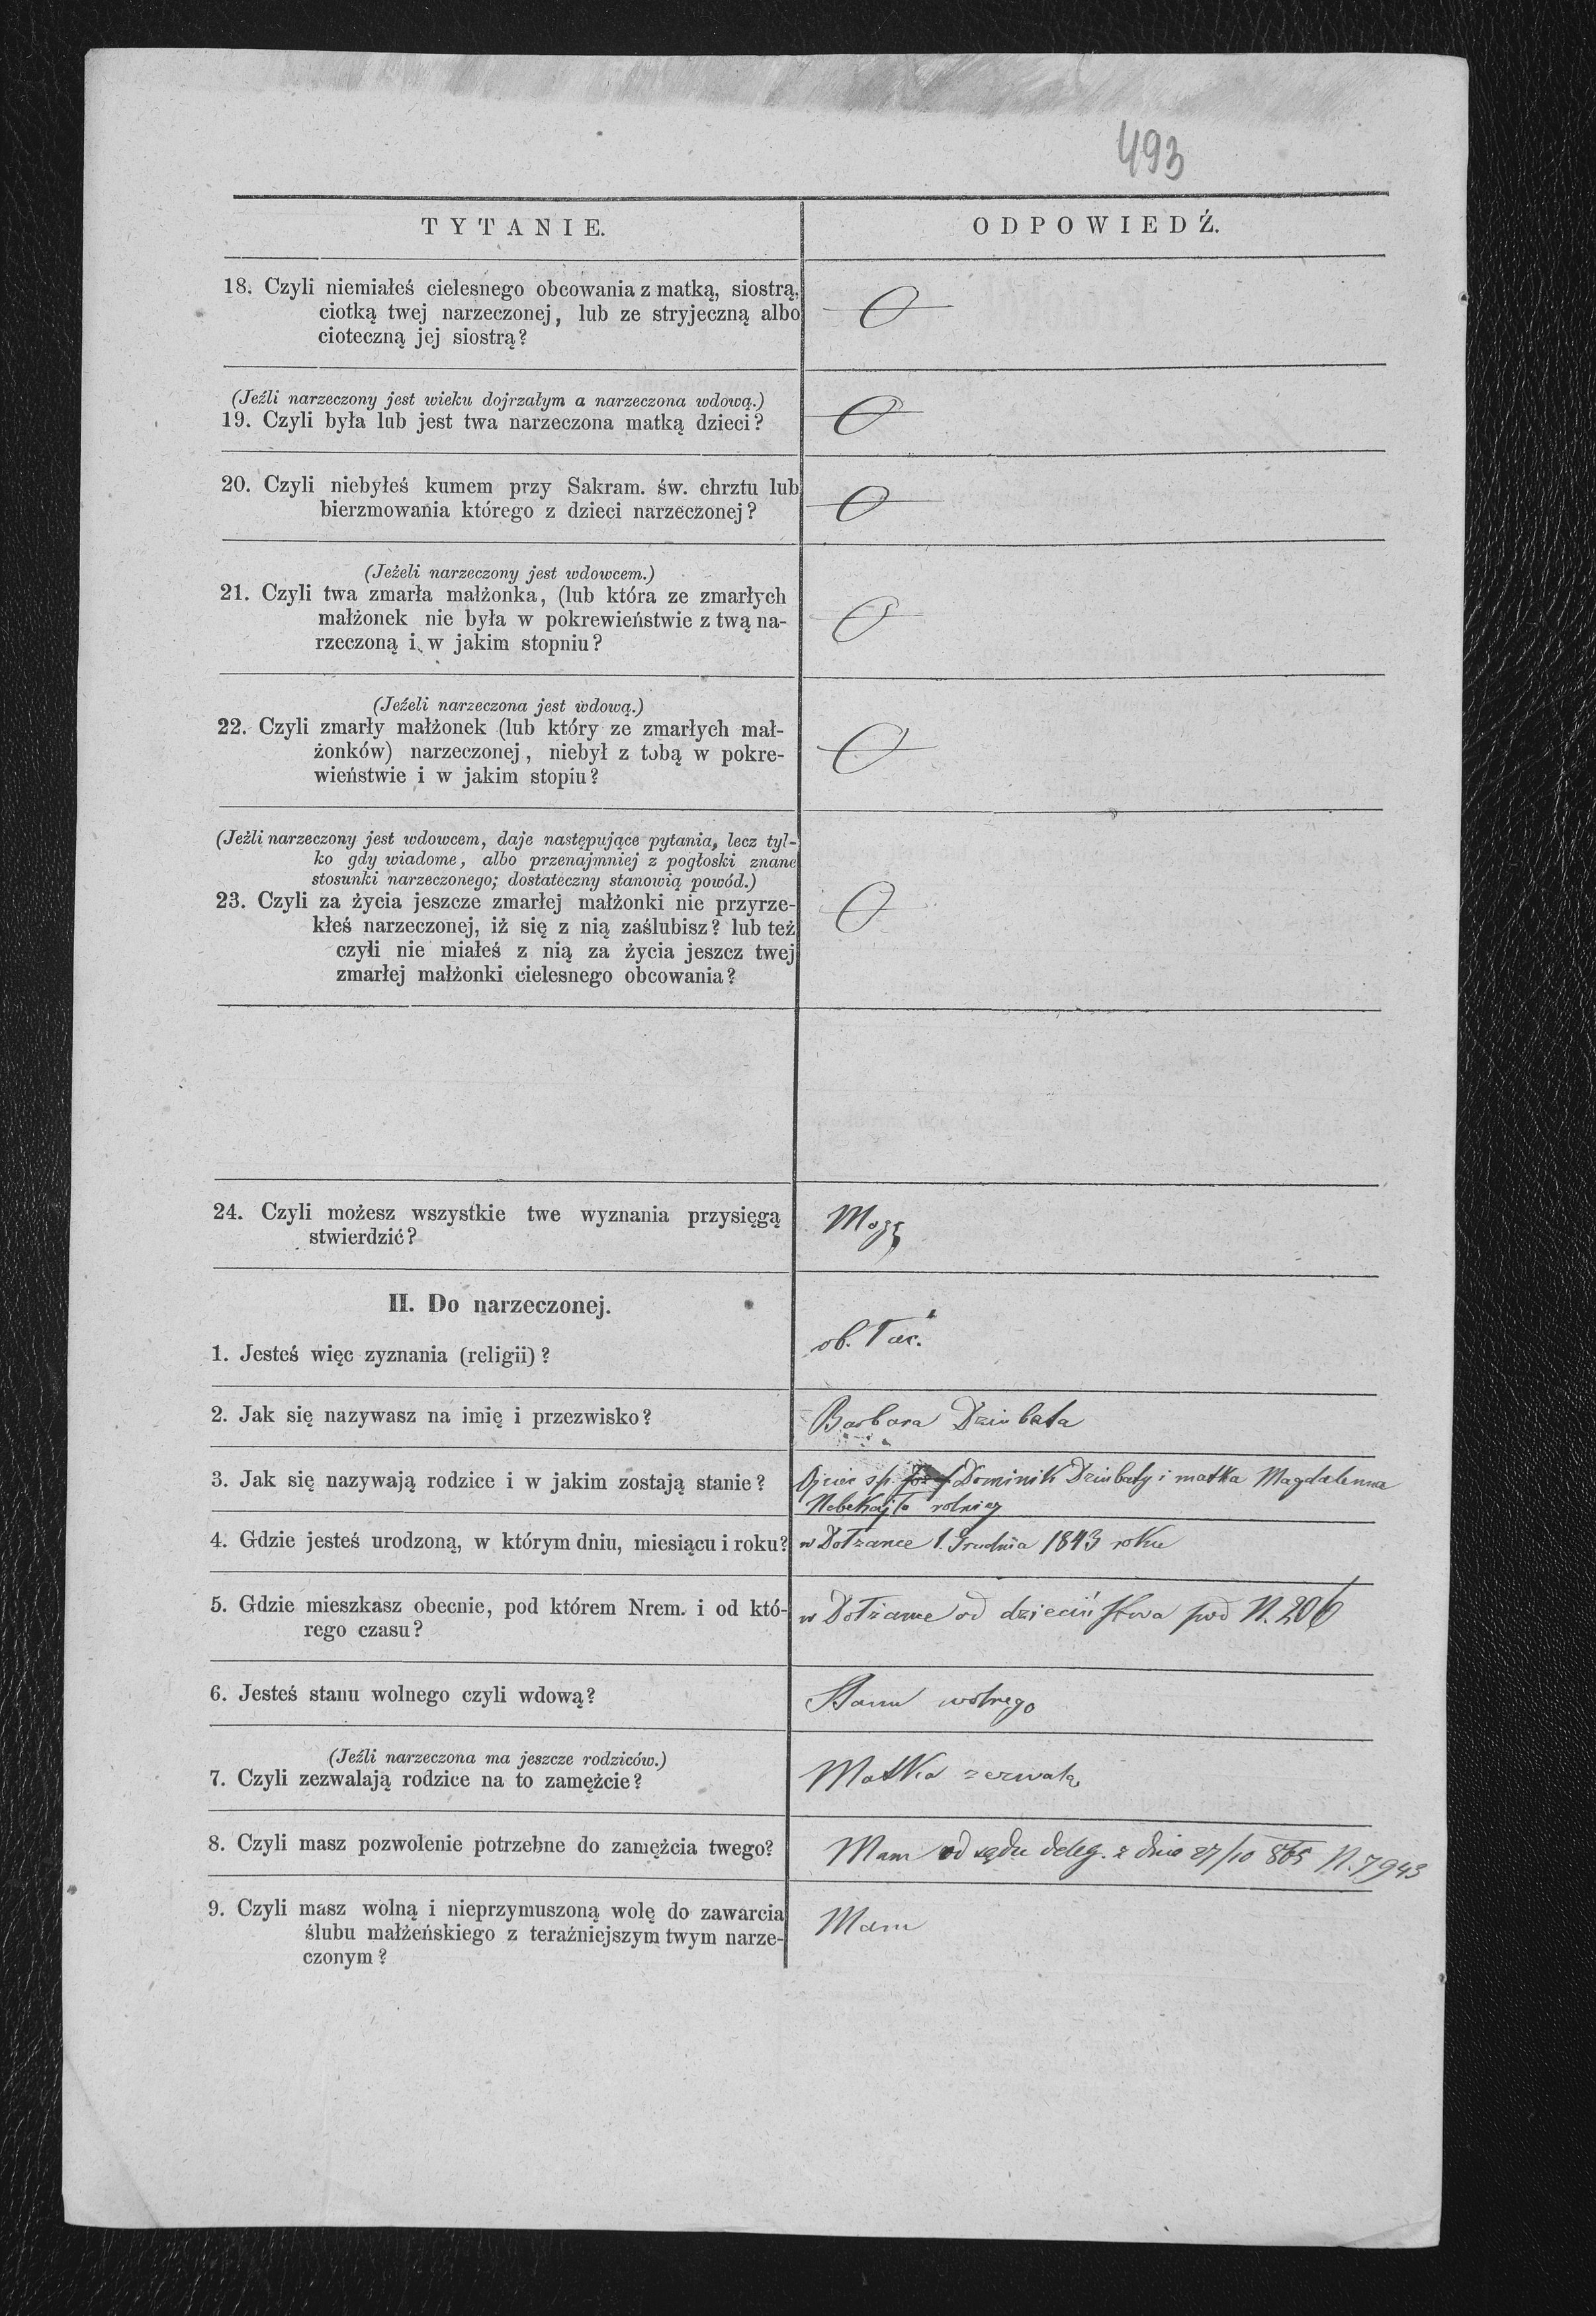 493
TYTANIE.
ODPOWIEDŹ.
18. Czyli niemiałeś cielesnego obcowania z matką, siostrą,
ciotką twej narzeczonej, lub ze stryjeczną albo
cioteczną jej siostrą?
(Jeźli narzeczony jest wieku dojrzałym a narzeczona wdową.)
19. Czyli była lub jest twa narzeczona matką dzieci?
20. Czyli niebyłeś kumem przy Sakram. św. chrztu lub
bierzmowania którego z dzieci narzeczonej?
(Jeżeli narzeczony jest wdowcem.)
21. Czyli twa zmarła małżonka, (lub która ze zmarłych
małżonek nie była w pokrewieństwie z twą na-
rzeczoną i w jakim stopniu?
(Jeźeli narzeczona jest wdową.)
22. Czyli zmarły małżonek (lub który ze zmarłych mał-
żonków) narzeczonej, niebył z tobą w pokre-
wieństwie i w jakim stopiu?
(Jeżli narzeczony jest wdowcem, daje następujące pytania, lecz tyl-
ko gdy wiadome, albo przenajmniej z pogłoski znane
stosunki narzeczonego; dostateczny stanowią powód.)
23. Czyli za życia jeszcze zmarłej małżonki nie przyrze-
kłeś narzeczonej, iż się z nią zaślubisz? lub też
czyli nie miałeś z nią za życia jeszcz twej
zmarłej małżonki cielesnego obcowania?
24. Czyli możesz wszystkie twe wyznania przysięgą
stwierdzić?
Mogę
II. Do narzeczonej.
1. Jesteś więc zyznania (religii)?
ob. łac.
2. Jak się nazywasz na imię i przezwisko?
Barbara Dziubata
3. Jak się nazywają rodzice i w jakim zostają stanie?
Ojciec sp. Dominik Dziubaty i matka Magdalenna
rolnicy
4. Gdzie jesteś urodzoną, w którym dniu, miesiącu i roku?
w Dołzance 1. Grudnia 1843 roku
5. Gdzie mieszkasz obecnie, pod którem Nrem. i od któ-
rego czasu?
w Dołzance od dzieciństwa pod N. 206
6. Jesteś stanu wolnego czyli wdową?
Stanu wolnego
(Jeźli narzeczona ma jeszcze rodziców.)
7. Czyli zezwalają rodzice na to zamężcie?
Matka
8. Czyli masz pozwolenie potrzebne do zamężcia twego?
Mam od sądu deleg. z dnia 27/10 865 N. 7943
9. Czyli masz wolną i nieprzymuszoną wolę do zawarcia
ślubu małżeńskiego z teraźniejszym twym narze-
czonym?
Mam